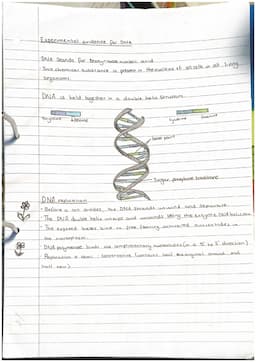 Experimental evidence for DNA
DNA stands for deoxyribose nucleic acid
This chemical substance is present in the nucleus of all cells in all living
organisms
DNA is held together in a double helix structure.
thymine adenine
cytosine guanine
base pairs
Sugar phosphate backbone
DNA replication
Before a cell divides, the DNA strands unwind and separate
The DNA double helix unzips and unwinds using the enzyme DNA helicase
The exposed bases bind to free floating nucleotides in
the nucleoplasm
DNA polymerase binds the complementary nucleotides (in a 5' to 3' direction)
Replication is semi-conservative (contains half the original strand and
half new)